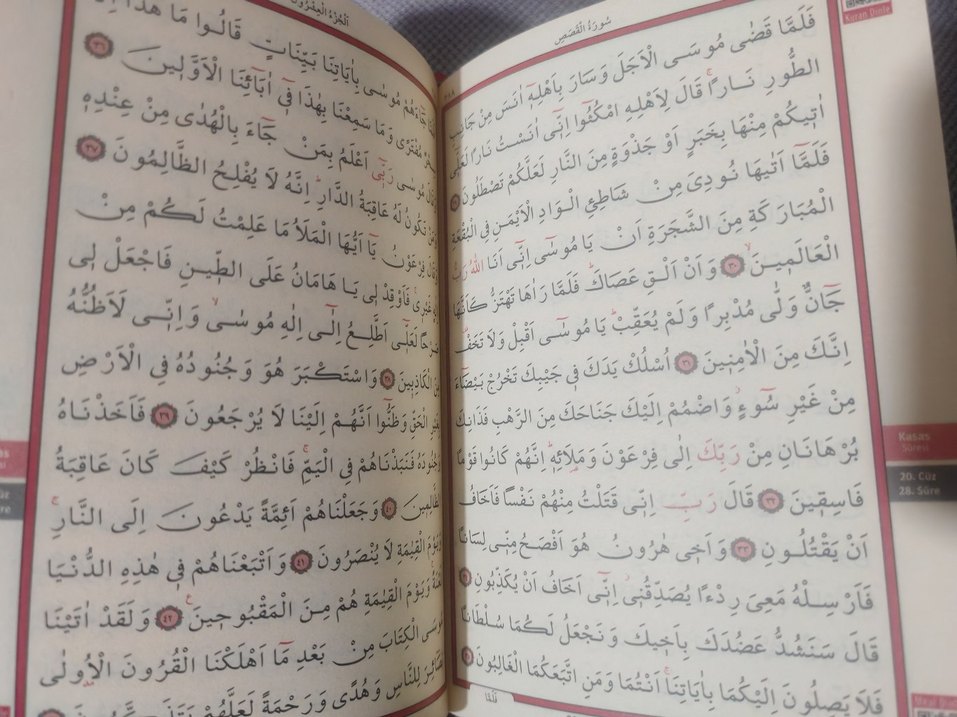 سُورَةُ الْقَصَصِ
فَلَمَّا قَضٰى مُوسَى الْاَجَلَ وَسَارَ بِاَهْلِهٖٓ اٰنَسَ مِنْ جَانِبِ
الطُّورِ نَارًاۚ قَالَ لِاَهْلِهِ امْكُثُٓوا اِنّٖٓي اٰنَسْتُ نَارًا لَعَلّٖٓي
اٰتٖيكُمْ مِنْهَا بِخَبَرٍ اَوْ جَذْوَةٍ مِنَ النَّارِ لَعَلَّكُمْ تَصْطَلُونَ
فَلَمَّٓا اَتٰيهَا نُودِيَ مِنْ شَاطِئِ الْوَادِ الْاَيْمَنِ فِي الْبُقْعَةِ
الْمُبَارَكَةِ مِنَ الشَّجَرَةِ اَنْ يَا مُوسٰٓى اِنّٖٓي اَنَا اللّٰهُ رَبُّ
الْعَالَمٖينَۙ ٣٠ وَاَنْ اَلْقِ عَصَاكَۜ فَلَمَّا رَاٰهَا تَهْتَزُّ كَاَنَّهَا
جَٓانٌّ وَلّٰى مُدْبِرًا وَلَمْ يُعَقِّبْۜ يَا مُوسٰٓى اَقْبِلْ وَلَا تَخَفْ
اِنَّكَ مِنَ الْاٰمِنٖينَ ٣١ اُسْلُكْ يَدَكَ فٖي جَيْبِكَ تَخْرُجْ بَيْضَٓاءَ
مِنْ غَيْرِ سُٓوءٍۘ وَاضْمُمْ اِلَيْكَ جَنَاحَكَ مِنَ الرَّهْبِ فَذَانِكَ
بُرْهَانَانِ مِنْ رَبِّكَ اِلٰى فِرْعَوْنَ وَمَلَا۬ئِهٖۜ اِنَّهُمْ كَانُوا قَوْمًا
فَاسِقٖينَ ٣٢ قَالَ رَبِّ اِنّٖي قَتَلْتُ مِنْهُمْ نَفْسًا فَاَخَافُ
اَنْ يَقْتُلُونِ ٣٣ وَاَخٖي هٰرُونُ هُوَ اَفْصَحُ مِنّٖي لِسَانًا
فَاَرْسِلْهُ مَعِيَ رِدْءًا يُصَدِّقُنٖيۘ اِنّٖٓي اَخَافُ اَنْ يُكَذِّبُونِ
قَالَ سَنَشُدُّ عَضُدَكَ بِاَخٖيكَ وَنَجْعَلُ لَكُمَا سُلْطَانًا
فَلَا يَصِلُونَ اِلَيْكُمَا بِاٰيَاتِنَاۚ اَنْتُمَا وَمَنِ اتَّبَعَكُمَا الْغَالِبُونَ
فَلَمَّا
Kuran Dinle
Kasas
Sûresi
20. Cüz
28. Sûre
اَلْجُزْءُ الْعِشْرُونَ
جَٓاءَهُمْ مُوسٰى بِاٰيَاتِنَا بَيِّنَاتٍ قَالُوا مَا هٰذَٓا
مُفْتَرًى وَمَا سَمِعْنَا بِهٰذَا فٖٓي اٰبَٓائِنَا الْاَوَّلٖينَ ٣٦
مُوسٰى رَبّٖٓي اَعْلَمُ بِمَنْ جَٓاءَ بِالْهُدٰى مِنْ عِنْدِهٖ
تَكُونُ لَهُ عَاقِبَةُ الدَّارِۜ اِنَّهُ لَا يُفْلِحُ الظَّالِمُونَ ٣٧
فِرْعَوْنُ يَٓا اَيُّهَا الْمَلَاُ مَا عَلِمْتُ لَكُمْ مِنْ
غَيْرٖيۚ فَاَوْقِدْ لٖي يَا هَامَانُ عَلَى الطّٖينِ فَاجْعَلْ لٖي
لَعَلّٖٓي اَطَّلِعُ اِلٰٓى اِلٰهِ مُوسٰىۙ وَاِنّٖي لَاَظُنُّهُ
مِنَ الْكَاذِبٖينَ ٣٨ وَاسْتَكْبَرَ هُوَ وَجُنُودُهُ فِي الْاَرْضِ
بِغَيْرِ الْحَقِّ وَظَنُّٓوا اَنَّهُمْ اِلَيْنَا لَا يُرْجَعُونَ ٣٩ فَاَخَذْنَاهُ
وَجُنُودَهُ فَنَبَذْنَاهُمْ فِي الْيَمِّۚ فَانْظُرْ كَيْفَ كَانَ عَاقِبَةُ
الظَّالِمٖينَ ٤٠ وَجَعَلْنَاهُمْ اَئِمَّةً يَدْعُونَ اِلَى النَّارِۚ
وَيَوْمَ الْقِيٰمَةِ لَا يُنْصَرُونَ ٤١ وَاَتْبَعْنَاهُمْ فٖي هٰذِهِ الدُّنْيَا
لَعْنَةًۚ وَيَوْمَ الْقِيٰمَةِ هُمْ مِنَ الْمَقْبُوحٖينَ۟ ٤٢ وَلَقَدْ اٰتَيْنَا
مُوسَى الْكِتَابَ مِنْ بَعْدِ مَٓا اَهْلَكْنَا الْقُرُونَ الْاُو۫لٰى
بَصَٓائِرَ لِلنَّاسِ وَهُدًى وَرَحْمَةً لَعَلَّهُمْ